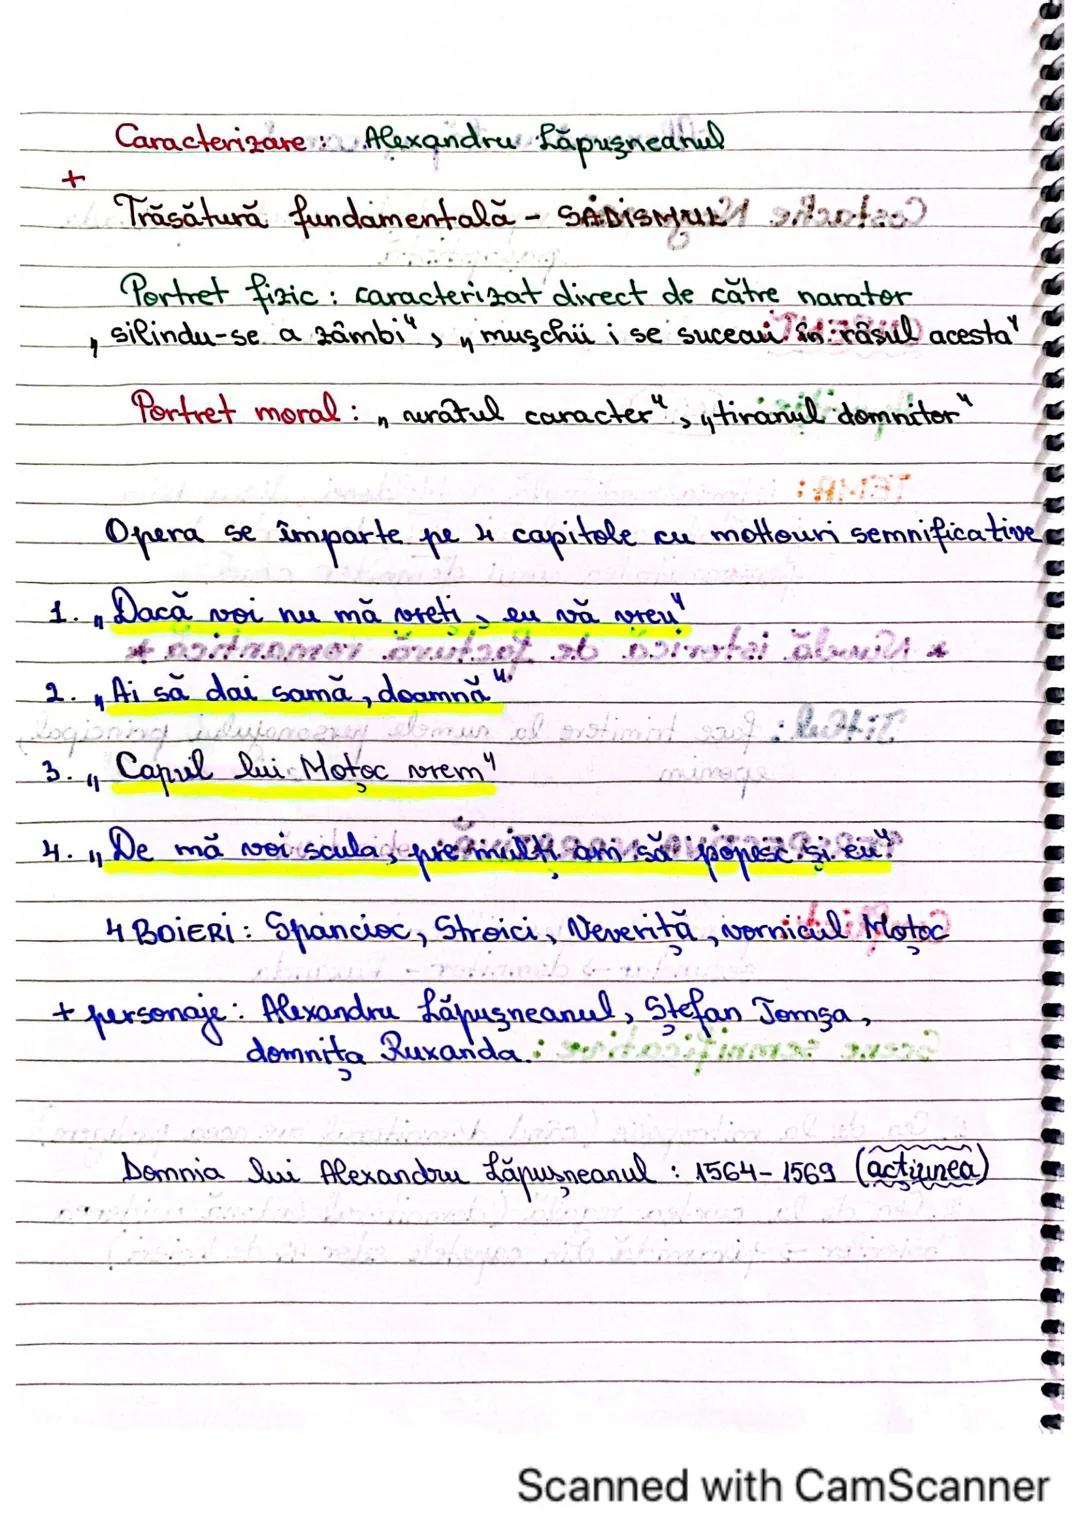 Caracterizare : Alexandru Lăpușneanul
+
Trăsătură fundamentală - SADISMUL
Portret fizic : caracterizat direct de către narator
„ silindu-se a zâmbi" , „ mușchii i se suceau în râsul acesta"
Portret moral : „ curatul caracter" , „ tiranul domnitor"
Opera se împarte pe 4 capitole cu mottouri semnificative
1. „ Dacă voi nu mă vreti , eu vă vreu"
2. „ Ai să dai samă , doamnă".
3. „ Capul lui Moțoc vrem"
4. „ De mă voi scula , pre mulți am să popesc și eu"
4 BOIERI : Spancioc , Stroici , Veveriță , vornicul Moțoc
+ personaje : Alexandru Lăpușneanul , Ștefan Tomșa ,
domnița Ruxanda .
Domnia lui Alexandru Lăpușneanul : 1564-1569 (acțiunea)
Scanned with CamScanner